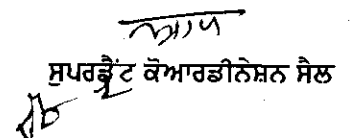 ਸੁਪਰਡ੍ਰੈਂਟ ਕੋਆਰਡੀਨੇਸ਼ਨ ਸੈਲ